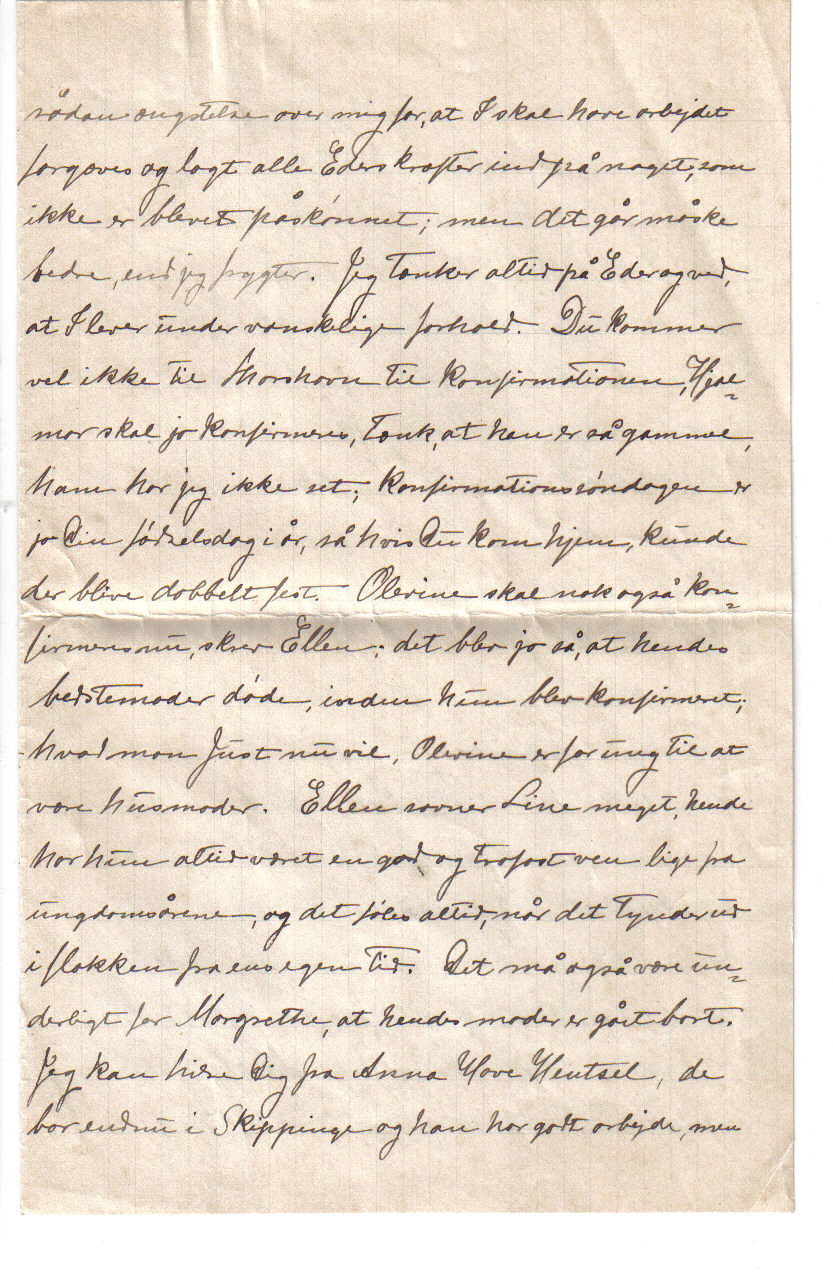 sådan ængstelse over mig for, at I skal have arbejdet
forgæves og lagt alle Eders kræfter ind på noget, som
ikke er blevet påskønnet; men det går måske
bedre, end jeg frygter. Jeg tænker altid på Eder og ved,
at I lever under vanskelige forhold. Du kommer
vel ikke til Thorshavn til Konfirmationen, Hjal=
mar skal jo konfirmeres, tænk, at han er så gammel,
ham har jeg ikke set; Konfirmationssøndagen er
jo Din fødselsdag i år, så hvis Du kom hjem, kunde
der blive dobbelt fest. Olevine skal nok også kon=
firmeres nu, skrev Ellen; det blev jo så, at hendes
bedstemoder døde, inden hun blev konfirmeret;
hvad mon Just nu vil, Olevine er for ung til at
være husmoder. Ellen savner Line meget, hende
har hun altid været en god og trofast ven lige fra
ungdomsårene, og det føles altid, når det tynder ud
i flokken fra ens egen tid. Det må også være un=
derligt for Margrethe, at hendes moder er gået bort.
Jeg kan hilse Dig fra Anna Hove Hentsel, de
bor endnu i Skippinge og han har godt arbejde, men